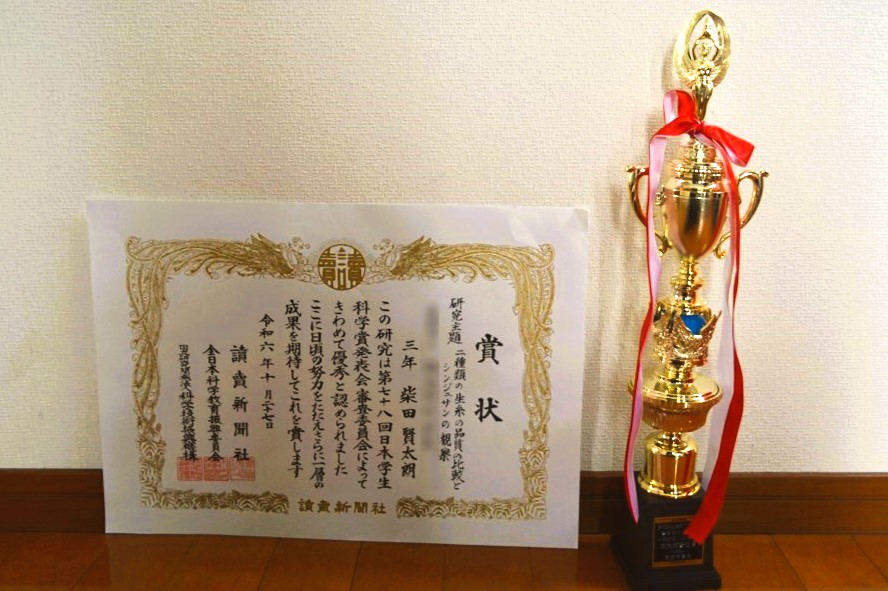 賞状
研究主題 二種類の生糸の品質の比較と
シンジュサンの観察
三年 柴田賢太朗
この研究は第七十八回日本学生
科学賞発表会審査委員会によって
きわめて優秀と認められました
ここに日頃の努力をたたえさらに一層の
成果を期待してこれを賞します
令和六年十月二十七日
讀賣新聞社
全日本科学教育振興委員会
科学技術振興機構
讀賣
讀賣新聞社